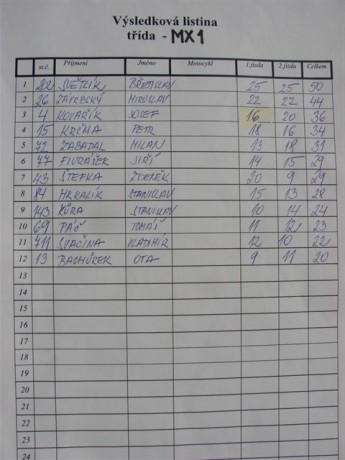 Výsledková listina
třída - MX1
st.č. Příjmení Jméno Motocykl 1 jízda 2 jízda Celkem
1 SVĚTLÍK BŘETISLAV 25 25 50
2 26 ZÁVRBSKÝ MIROSLAV 22 22 44
3 4 KOVAŘÍK JOSEF 16 20 36
4 15 KRČMA PETR 18 16 34
5 72 ZABADAL MILAN 13 18 31
6 77 JIŘÍ 14 15 29
7 43 ŠTEFKA ZDENĚK 20 9 29
8 14 STANISLAV 15 13 28
9 143 KŮRA STANISLAV 10 14 24
10 69 TOMÁŠ 11 12 23
11 711 SVAČINA VLADIMÍR 12 10 22
12 13 BACHŮREK OTA 9 11 20
13
14
15
16
17
18
19
20
21
22
23
24